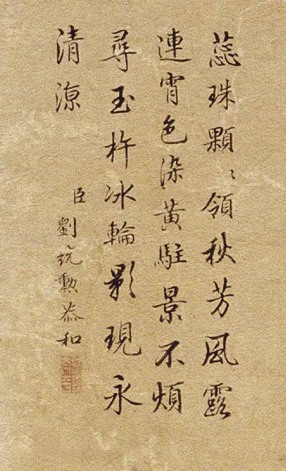 蕊珠顆〻領秋芳風露
連宵色染黃駐景不煩
尋玉杵冰輪影現永
清涼
臣劉統勲恭和